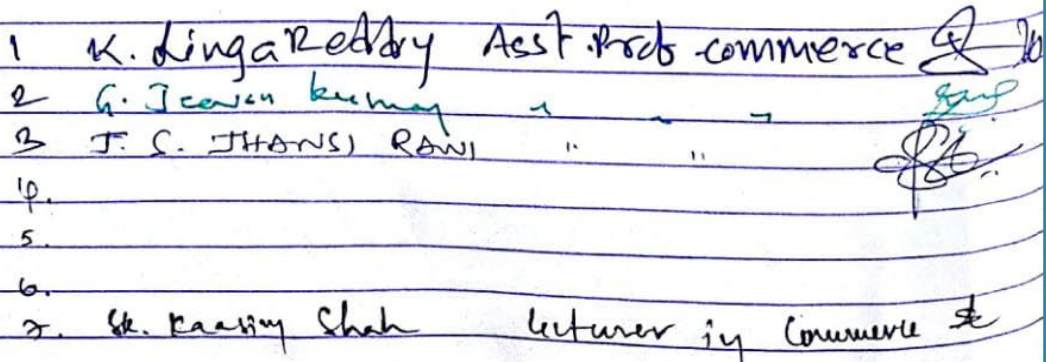 1 K. Linga Reddy Asst. Prof commerce
2 G. Jeevan kumar " " "
3 J. S. JHANSI RANI " "
4.
5.
6.
7. Sk. Kaasim Shah lecturer in Commerce